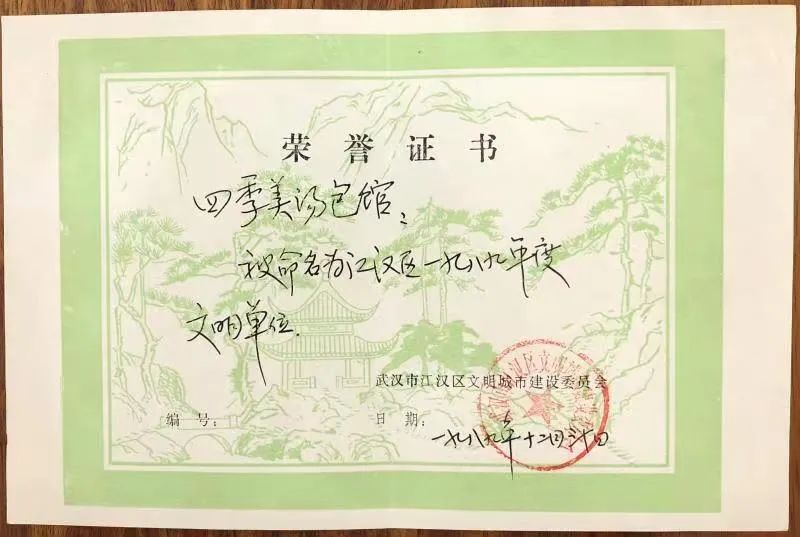 荣誉证书
四季美汤包馆：
被命名为江汉区一九八九年度
文明单位.
武汉市江汉区文明城市建设委员会
编号：
日期：
一九八九年十二月三十日